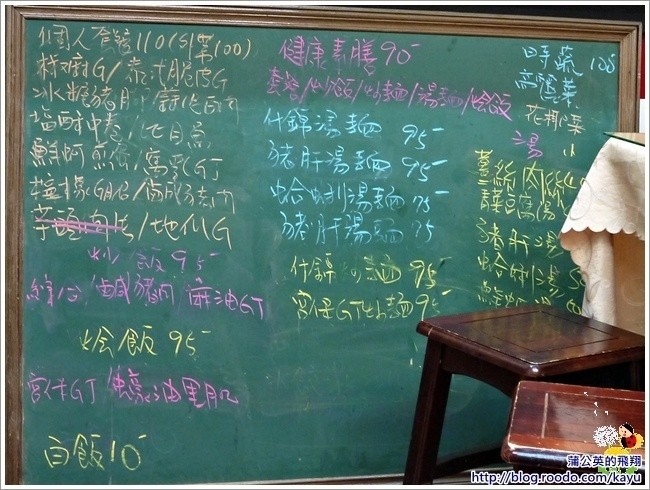 個人套餐110(外帶100)
椒麻G/泰式脆皮G
冰糖豬腳/蒜泥白肉
塩酥中卷/七日魚
鮮蚵煎/G丁
芋頭肉片/地仙G
炒飯95-
綜合 鹹豬肉 麻油G丁
燴飯95-
宮保G丁 蠔油里肌
白飯10-
健康素膳90-
套餐/炒飯/炒麵/湯麵/燴飯
什錦湯麵 95-
豬肝湯麵 95-
蛤蜊湯麵 75-
豬肝湯麵 75
什錦炒麵 95-
宮保G丁炒麵95-
時蔬 100
高麗菜
花椰菜
湯 小
薑絲肉絲
青菜豆腐湯
豬肝湯
蛤蜊湯 50
蒲公英的飛翔
http://blog.roodo.com/kayu